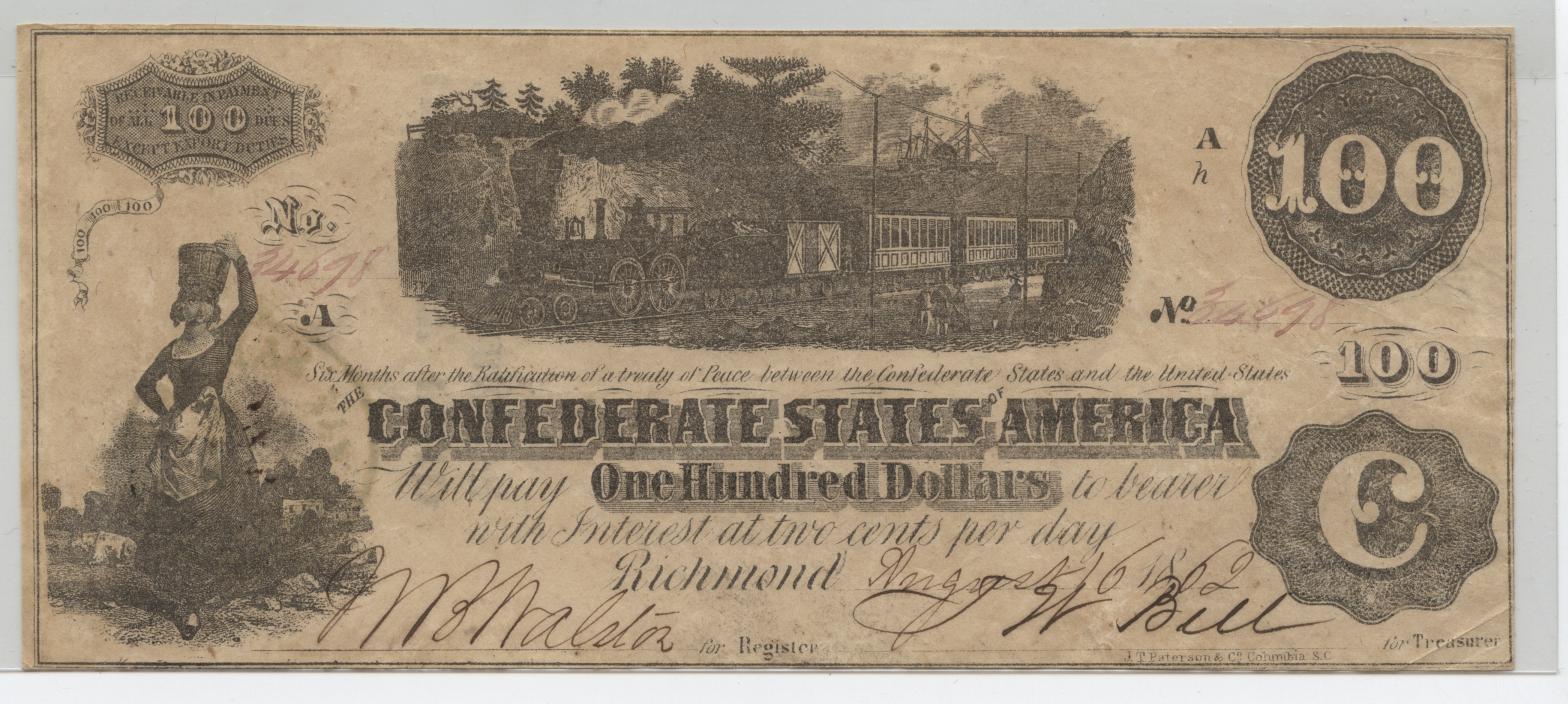 RECEIVABLE IN PAYMENT
OF ALL 100 DUES
EXCEPT EXPORT DUTIES
100 100 100
No.
34698
A
A
h
100
No 34698
100
Six Months after the Ratification of a treaty of Peace between the Confederate States and the United States
THE CONFEDERATE STATES OF AMERICA
Will pay One Hundred Dollars to bearer
with Interest at two cents per day
Richmond August 16 1862
C
for Register
J W Bill
for Treasurer
J.T. Paterson & Co Columbia S.C